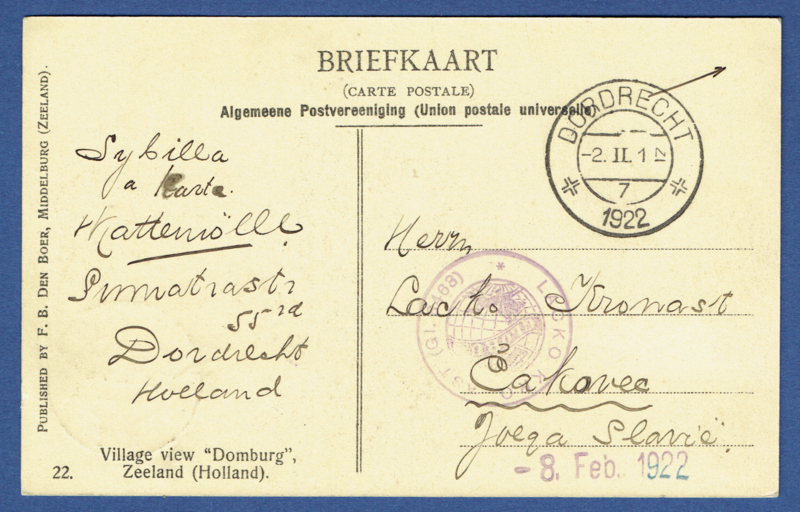 BRIEFKAART
(CARTE POSTALE)
Algemeene Postvereeniging (Union postale universelle)
DORDRECHT
-2. II. 1 N
7
1922
PUBLISHED BY F. B. DEN BOER, MIDDELBURG (ZEELAND).
Sybilla
a Karte.
Dordrecht
Holland
Village view "Domburg",
22. Zeeland (Holland).
Herrn
Lack. Kronast
LACKO KRONAST (Gl. 68)
Čakovec
Joega Slavië.
-8. Feb. 1922